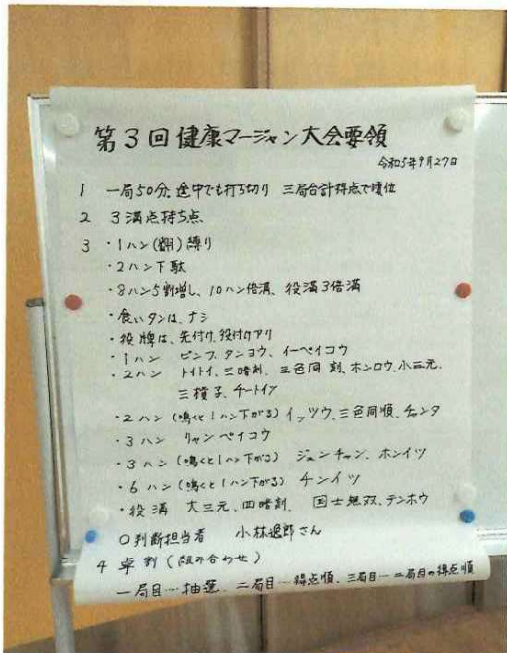 第3回健康マージャン大会要領
令和5年9月27日
1 一局50分、途中でも打ち切り 三局合計得点で順位
2 3満点持ち点
3 ・1ハン(飜)縛り
・2ハン下駄
・8ハン5割増し、10ハン倍満、役満3倍満
・食いタンは、ナシ
・役牌は、先付け、後付けアリ
・1ハン ピンフ、タンヨウ、イーペイコウ
・2ハン トイトイ、三暗刻、三色同刻、ホンロウ、小三元、
三槓子、チートイツ
・2ハン(鳴くと1ハン下がる)イッツウ、三色同順、チャンタ
・3ハン リャンペイコウ
・3ハン(鳴くと1ハン下がる) ジュンチャン、ホンイツ
・6ハン(鳴くと1ハン下がる) チンイツ
・役満 大三元、四暗刻、国士無双、テンホウ
○判断担当者 小林逸郎さん
4 卓割(組み合わせ)
一局目…抽選、二局目…得点順、三局目…二局目の得点順